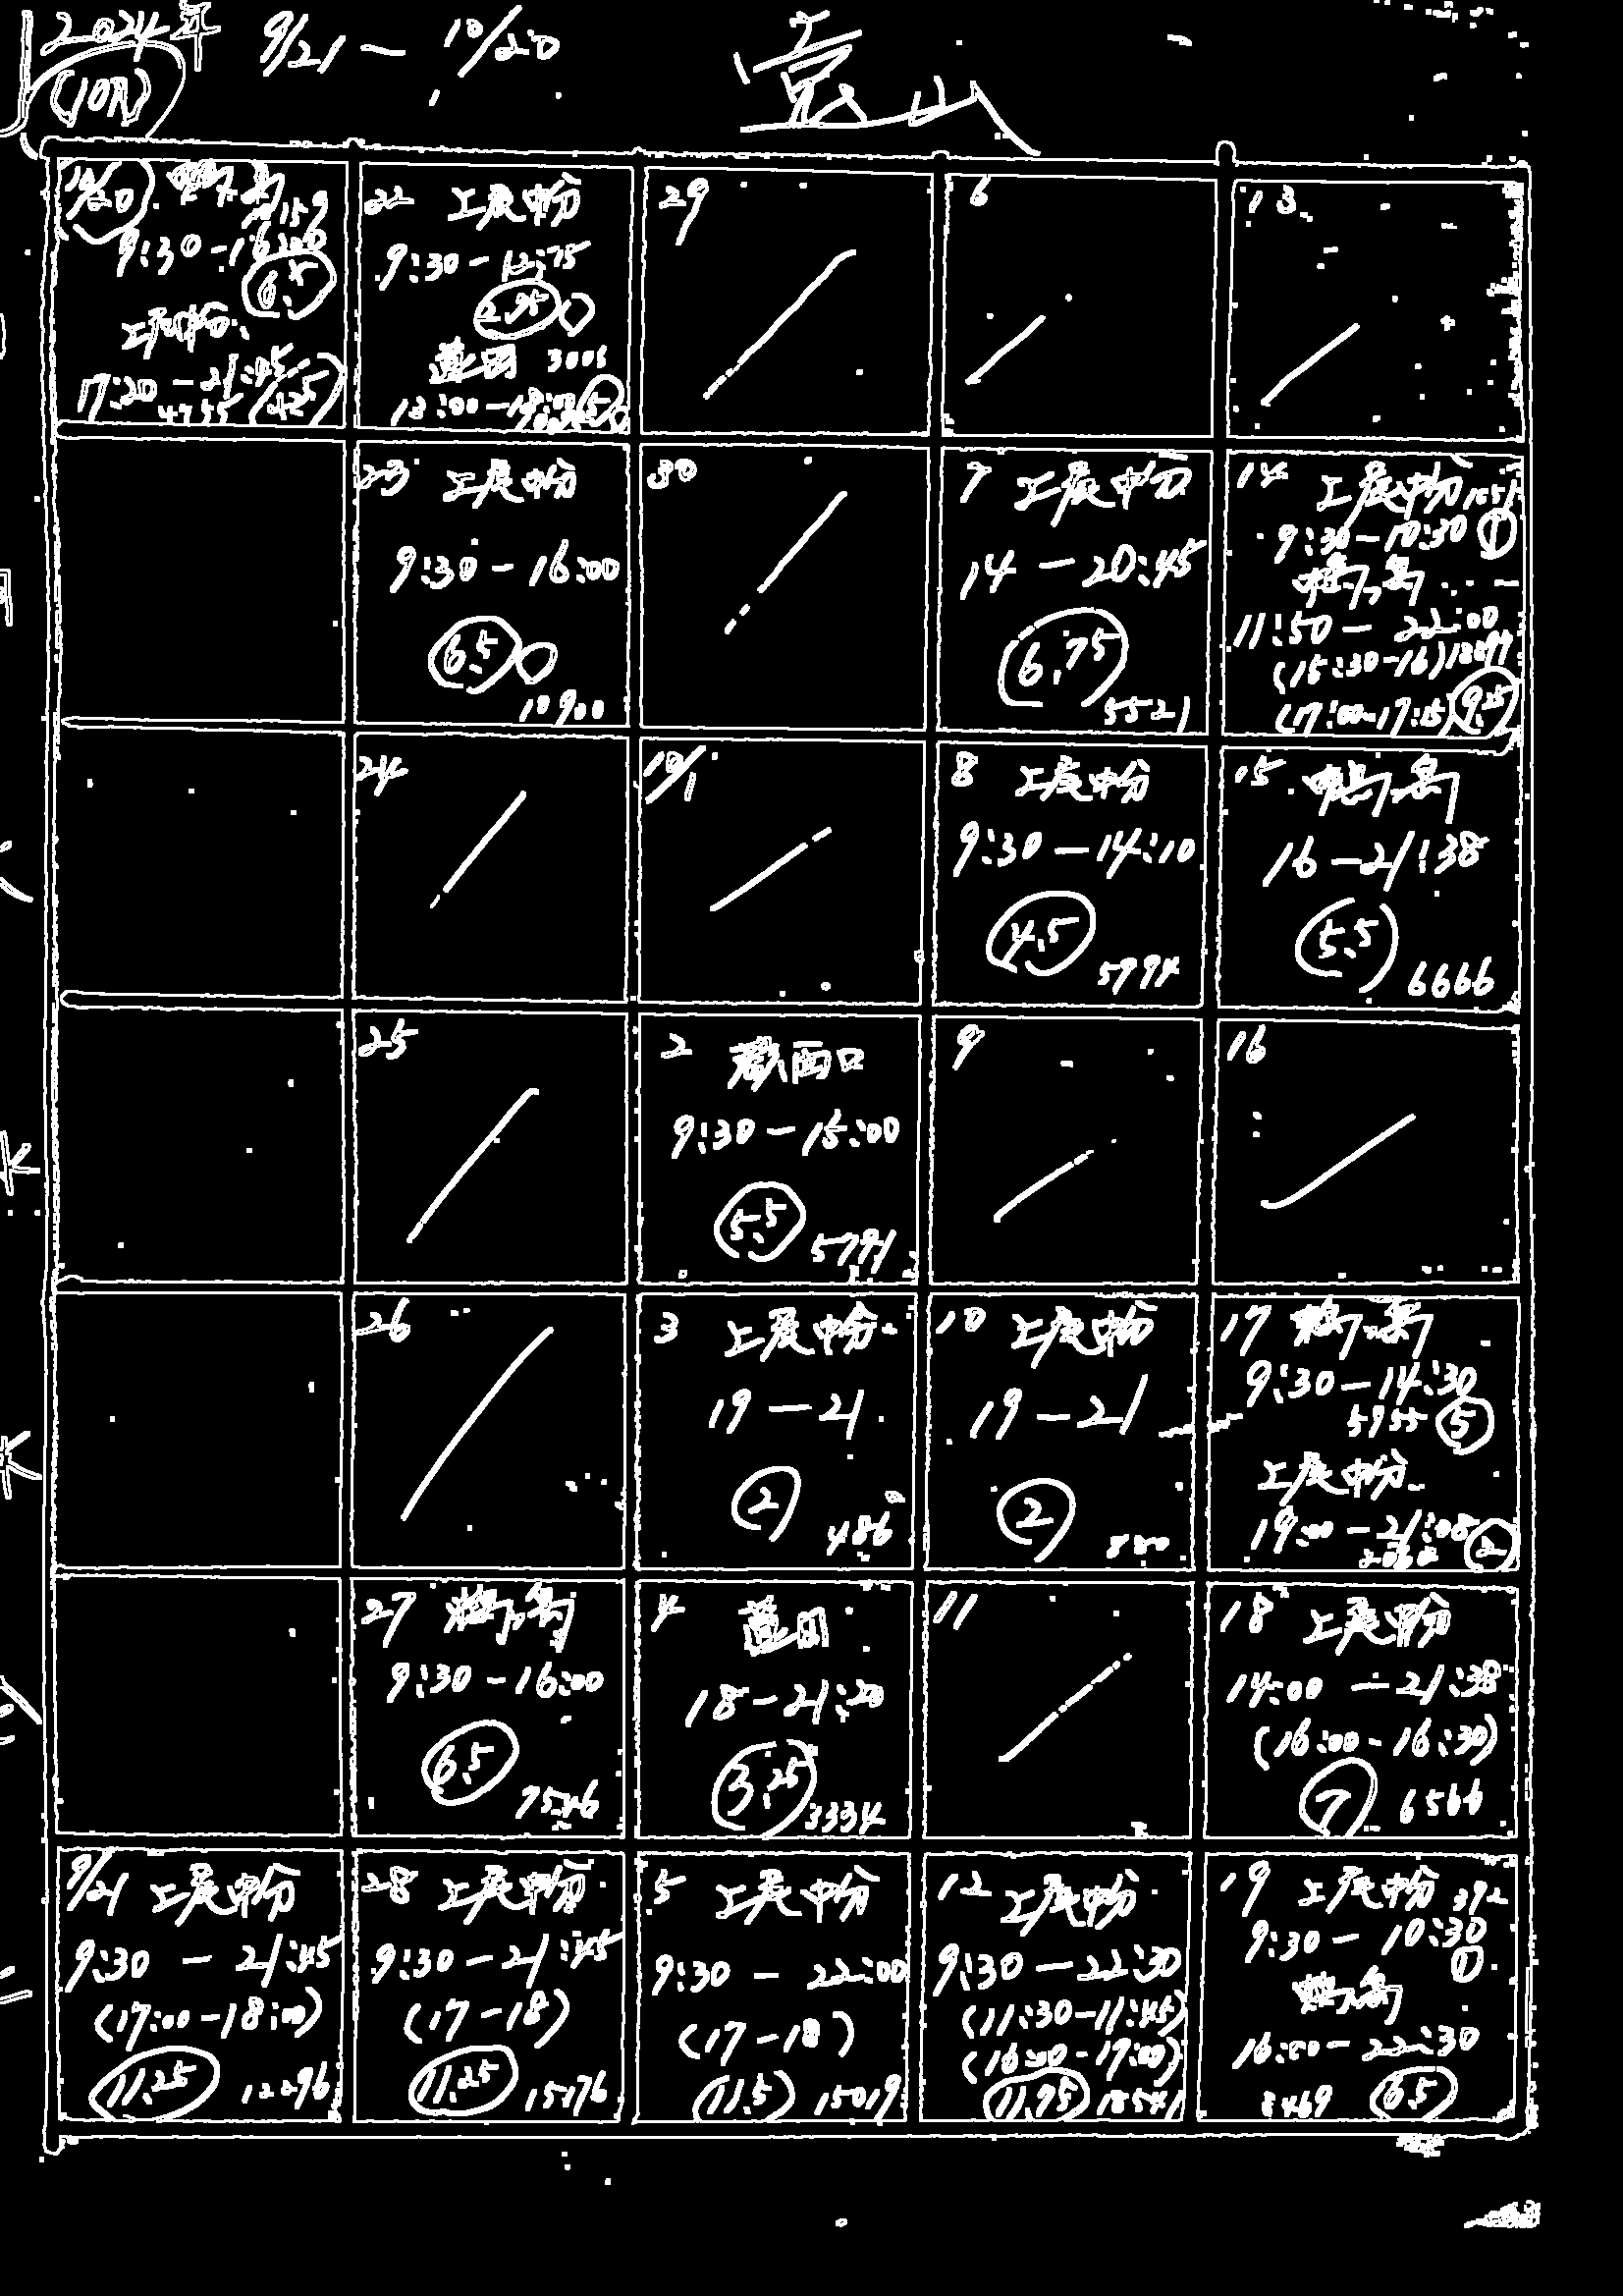 2024年 9/21 — 10/20
(10月)
10/20
9:30-16:00
6.5
上尾中分
17:20-21:45
4.25
22 上尾中分
9:30-12:75
2.75
蓮田
13:00-18:00
5
29
6
13
23 上尾中分
9:30-16:00
6.5
10900
30
7 上尾中分
14-20:45
6.75
5521
14 上尾中分
9:30-10:30 1
11:50-22:00
(15:30-16)
(17:00-17:15) 9.25
24
10/1
8 上尾中分
9:30-14:10
4.5
5994
15
16-21:38
5.5
6666
25
2 蕨西口
9:30-15:00
5.5
5791
9
16
26
3 上尾中分
19-21
2
486
10 上尾中分
19-21
2
880
17
9:30-14:30
5955 5
上尾中分
19:00-21:08
2
27
9:30-16:00
6.5
7546
4 蓮田
18-21:20
3.25
3334
11
18 上尾中分
14:00-21:38
(16:00-16:30)
7 6566
9/21 上尾中分
9:30-21:45
(17:00-18:00)
11.25 12296
28 上尾中分
9:30-21:45
(17-18)
11.25 15176
5 上尾中分
9:30-22:00
(17-18)
11.5 15019
12 上尾中分
9:30-22:30
(11:30-11:45)
(16:00-17:00)
11.75 18541
19 上尾中分 392
9:30-10:30
1
16:00-22:30
8469 6.5